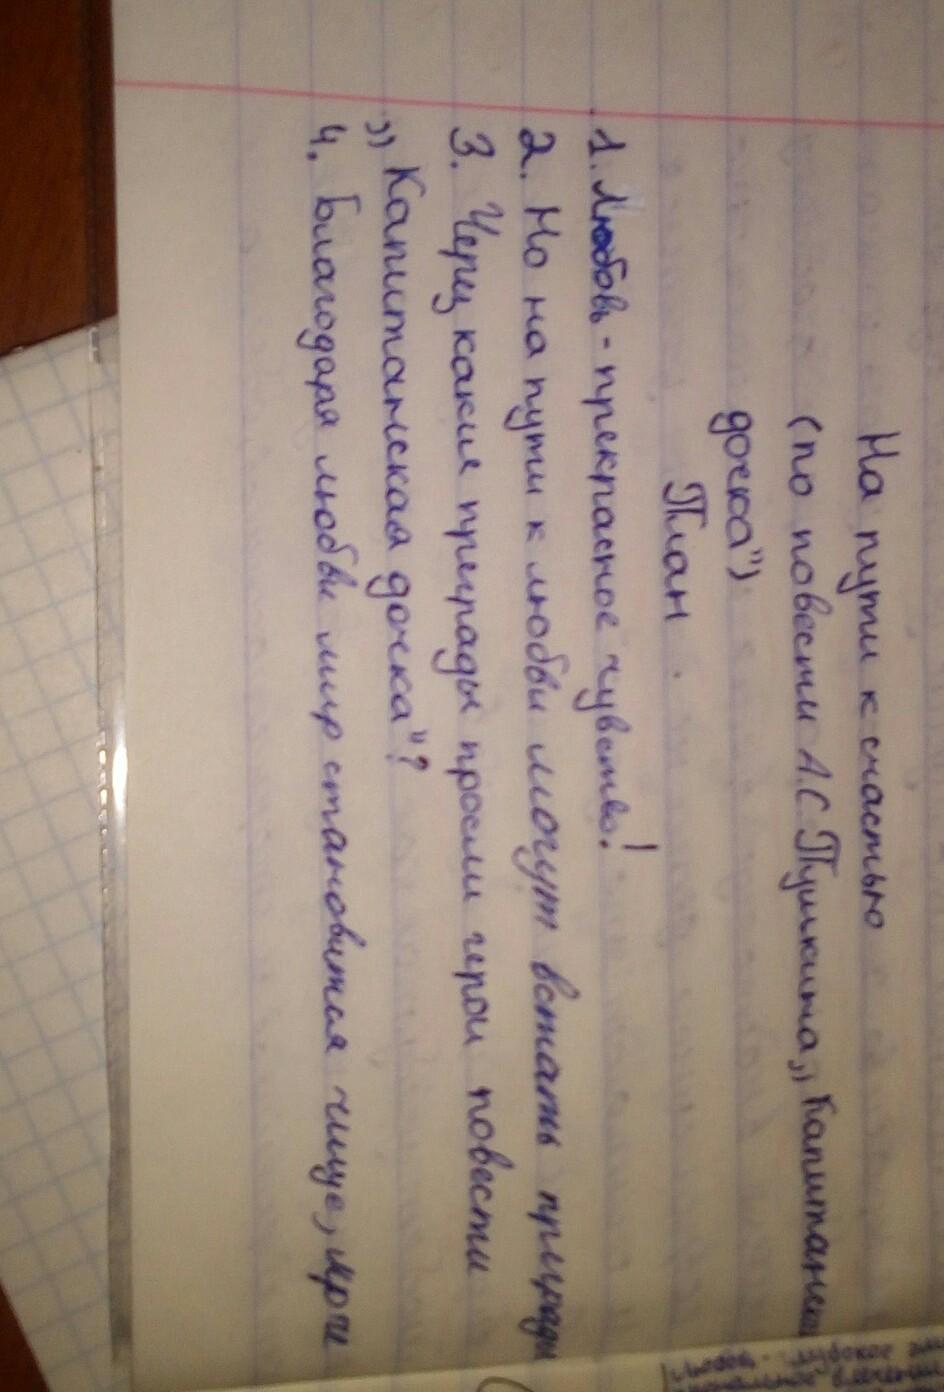 На пути к счастью
(по повести А.С. Пушкина „Капитанская
дочка")
План.
1. Любовь - прекрасное чувство!
2. Но на пути к любви могут встать преграды
3. Через какие преграды прошли герои повести
„Капитанская дочка"?
4. Благодаря любви мир становится чище, ярче
любовь -